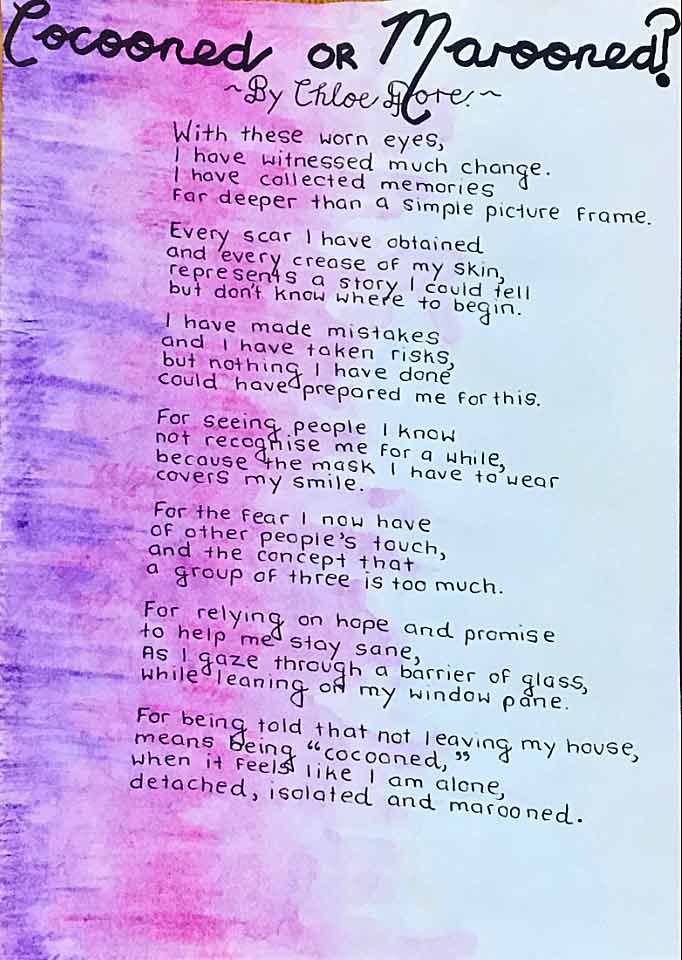 Cocooned or Marooned?
~By Chloe Gore.~
With these worn eyes,
I have witnessed much change.
I have collected memories
far deeper than a simple picture frame.
Every scar I have obtained
and every crease of my skin,
represents a story I could tell
but don't know where to begin.
I have made mistakes
and I have taken risks,
but nothing I have done
could have prepared me for this.
For seeing people I know
not recognise me for a while,
because the mask I have to wear
covers my smile.
For the fear I now have
of other people's touch,
and the concept that
a group of three is too much.
For relying on hope and promise
to help me stay sane,
As I gaze through a barrier of glass,
while leaning on my window pane.
For being told that not leaving my house,
means being "cocooned,"
when it feels like I am alone,
detached, isolated and marooned.